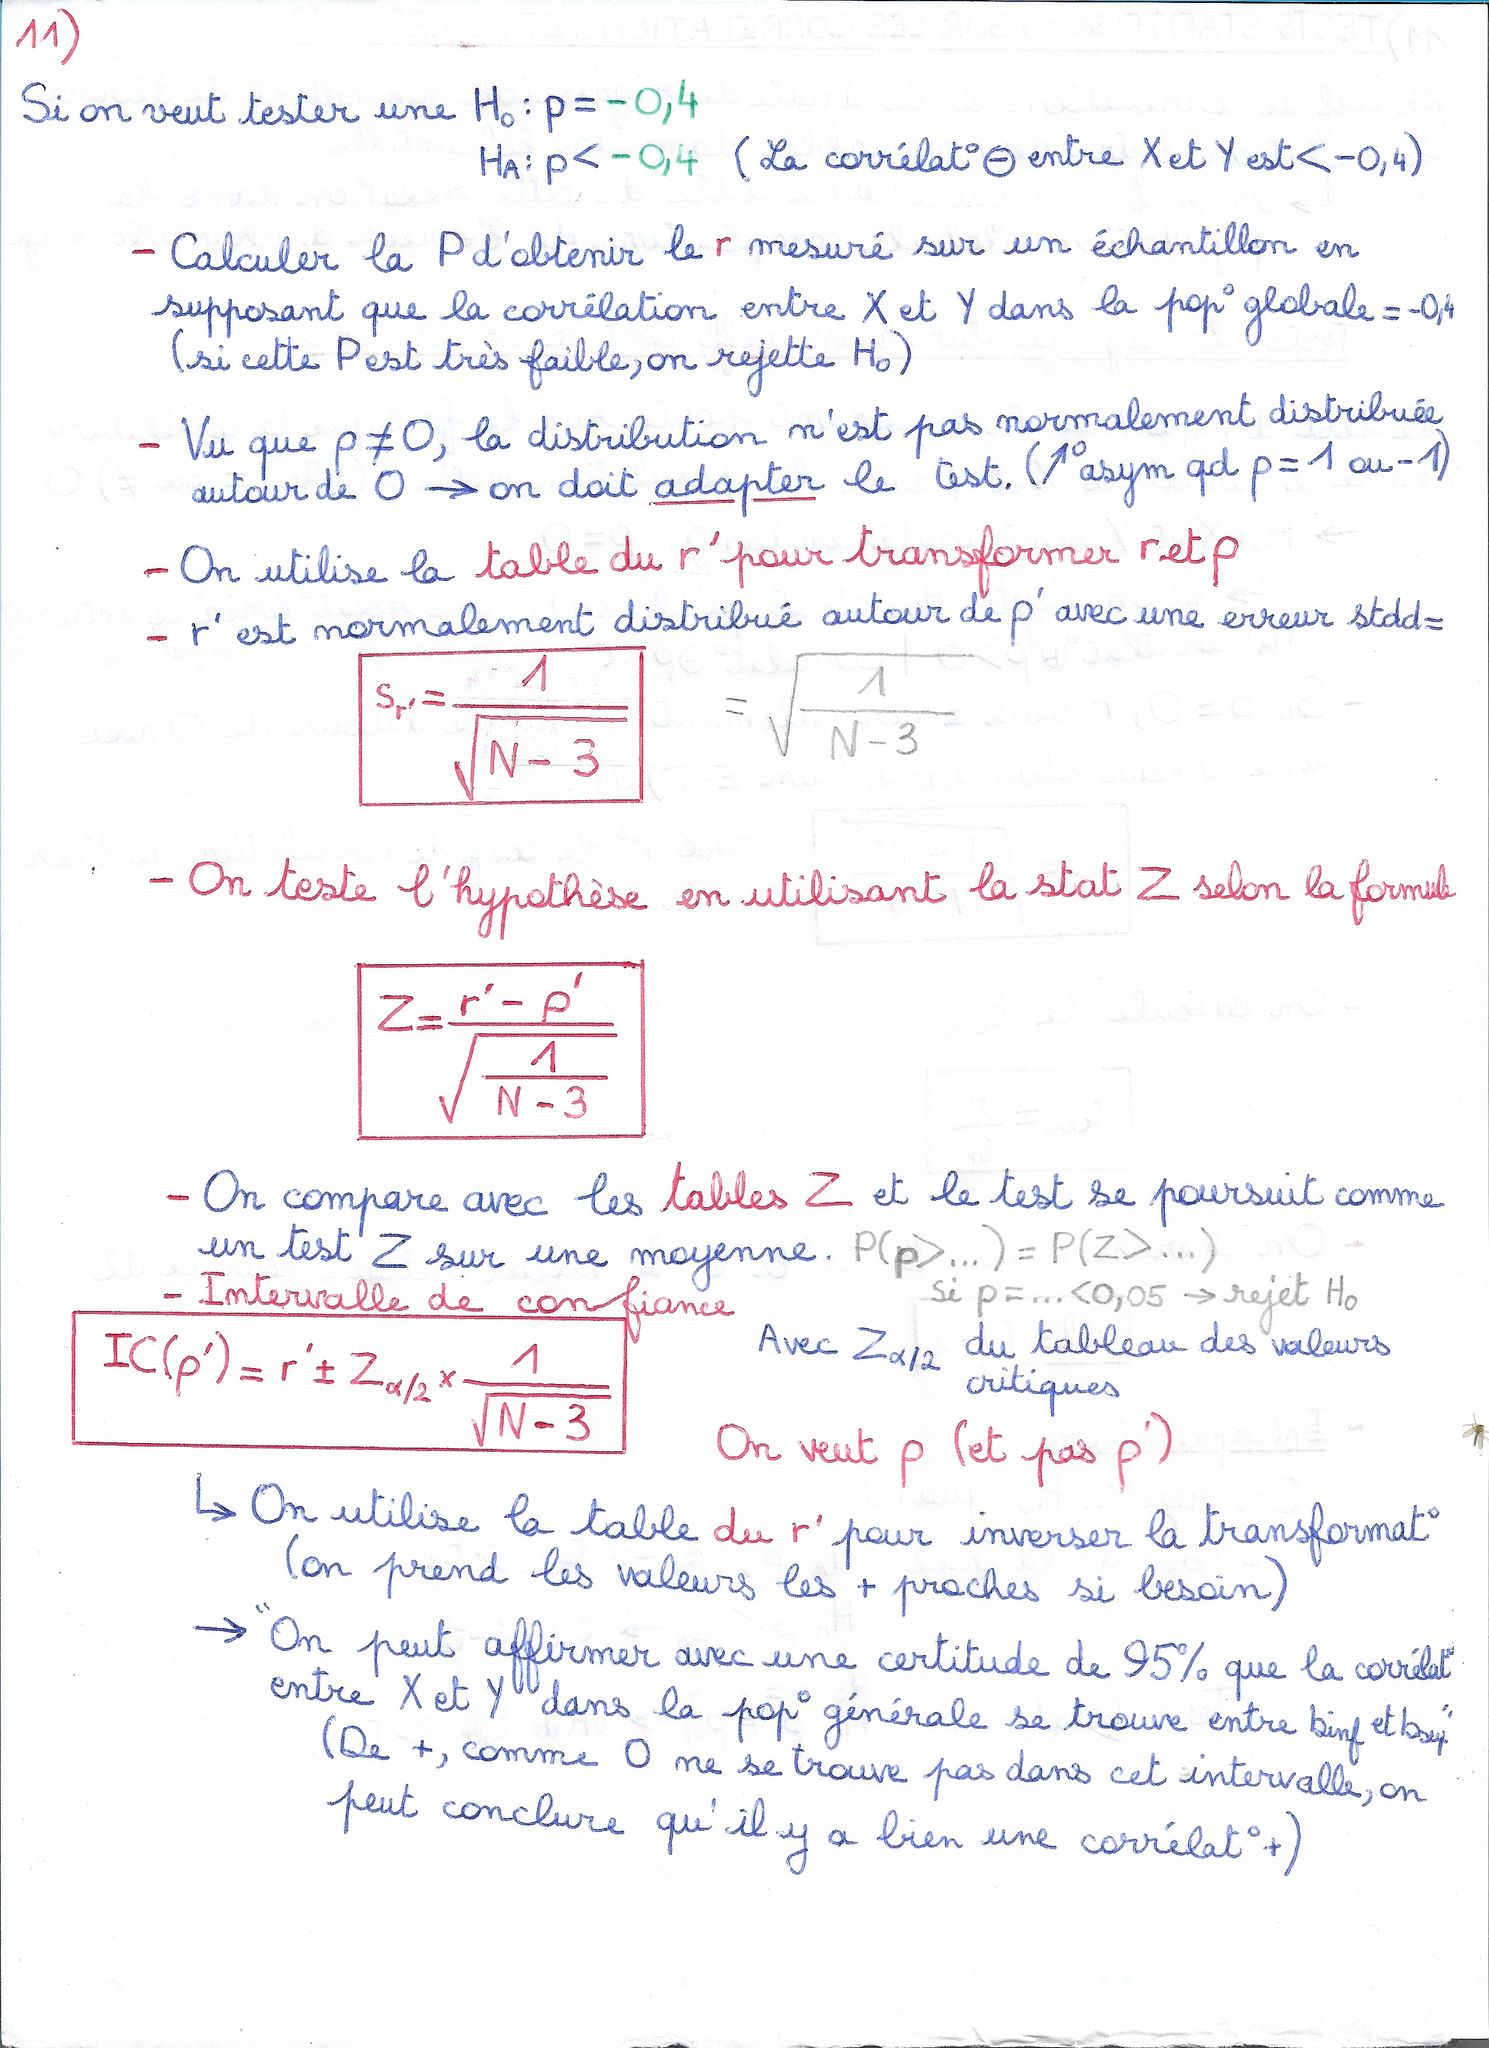 11)
Si on veut tester une H₀ : ρ = -0,4
H_A : ρ < -0,4 (La corrélat° ⊖ entre X et Y est < -0,4)
- Calculer la P d'obtenir le r mesuré sur un échantillon en
supposant que la corrélation entre X et Y dans la pop° globale = -0,4
(si cette P est très faible, on rejette H₀)
- Vu que ρ ≠ 0, la distribution n'est pas normalement distribuée
autour de 0 → on doit adapter le test. (↗° asym qd ρ = 1 ou -1)
- On utilise la table du r' pour transformer r et ρ
- r' est normalement distribué autour de ρ' avec une erreur stdd =
s_r' = 1/√(N - 3) = √(1/(N - 3))
- On teste l'hypothèse en utilisant la stat Z selon la formule
Z = (r' - ρ')/√(1/(N - 3))
- On compare avec les tables Z et le test se poursuit comme
un test Z sur une moyenne. P(ρ > ...) = P(Z > ...)
Si p = ... < 0,05 → rejet H₀
- Intervalle de confiance
IC(ρ') = r' ± Z_α/2 × 1/√(N - 3)
Avec Z_α/2 du tableau des valeurs
critiques
On veut ρ (et pas ρ')
↳ On utilise la table du r' pour inverser la transformat°
(on prend les valeurs les + proches si besoin)
→ "On peut affirmer avec une certitude de 95% que la corrélat°
entre X et Y dans la pop° générale se trouve entre binf et bsup"
(De +, comme 0 ne se trouve pas dans cet intervalle, on
peut conclure qu'il y a bien une corrélat° +)